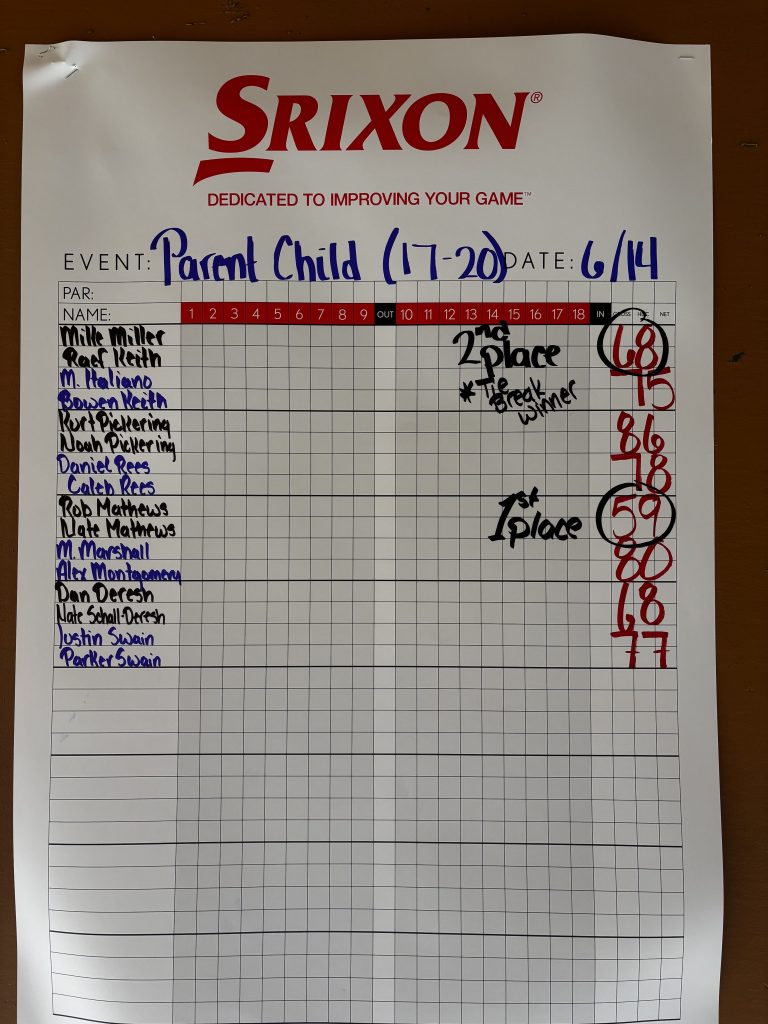 SRIXON®
DEDICATED TO IMPROVING YOUR GAME™
EVENT: Parent Child (17-20) DATE: 6/14
PAR:
NAME: 1 2 3 4 5 6 7 8 9 OUT 10 11 12 13 14 15 16 17 18 IN GROSS HDC NET
Mille Miller 2nd place 68
Raef Keith
M. Italiano *Tie Break Winner 75
Bowen Keith
Kurt Pickering 86
Noah Pickering
Daniel Rees 78
Caleb Rees
Rob Mathews 1st place 59
Nate Mathews
M. Marshall 80
Alex Montgomery
Dan Deresh 68
Nate Schall-Deresh
Justin Swain 77
Parker Swain